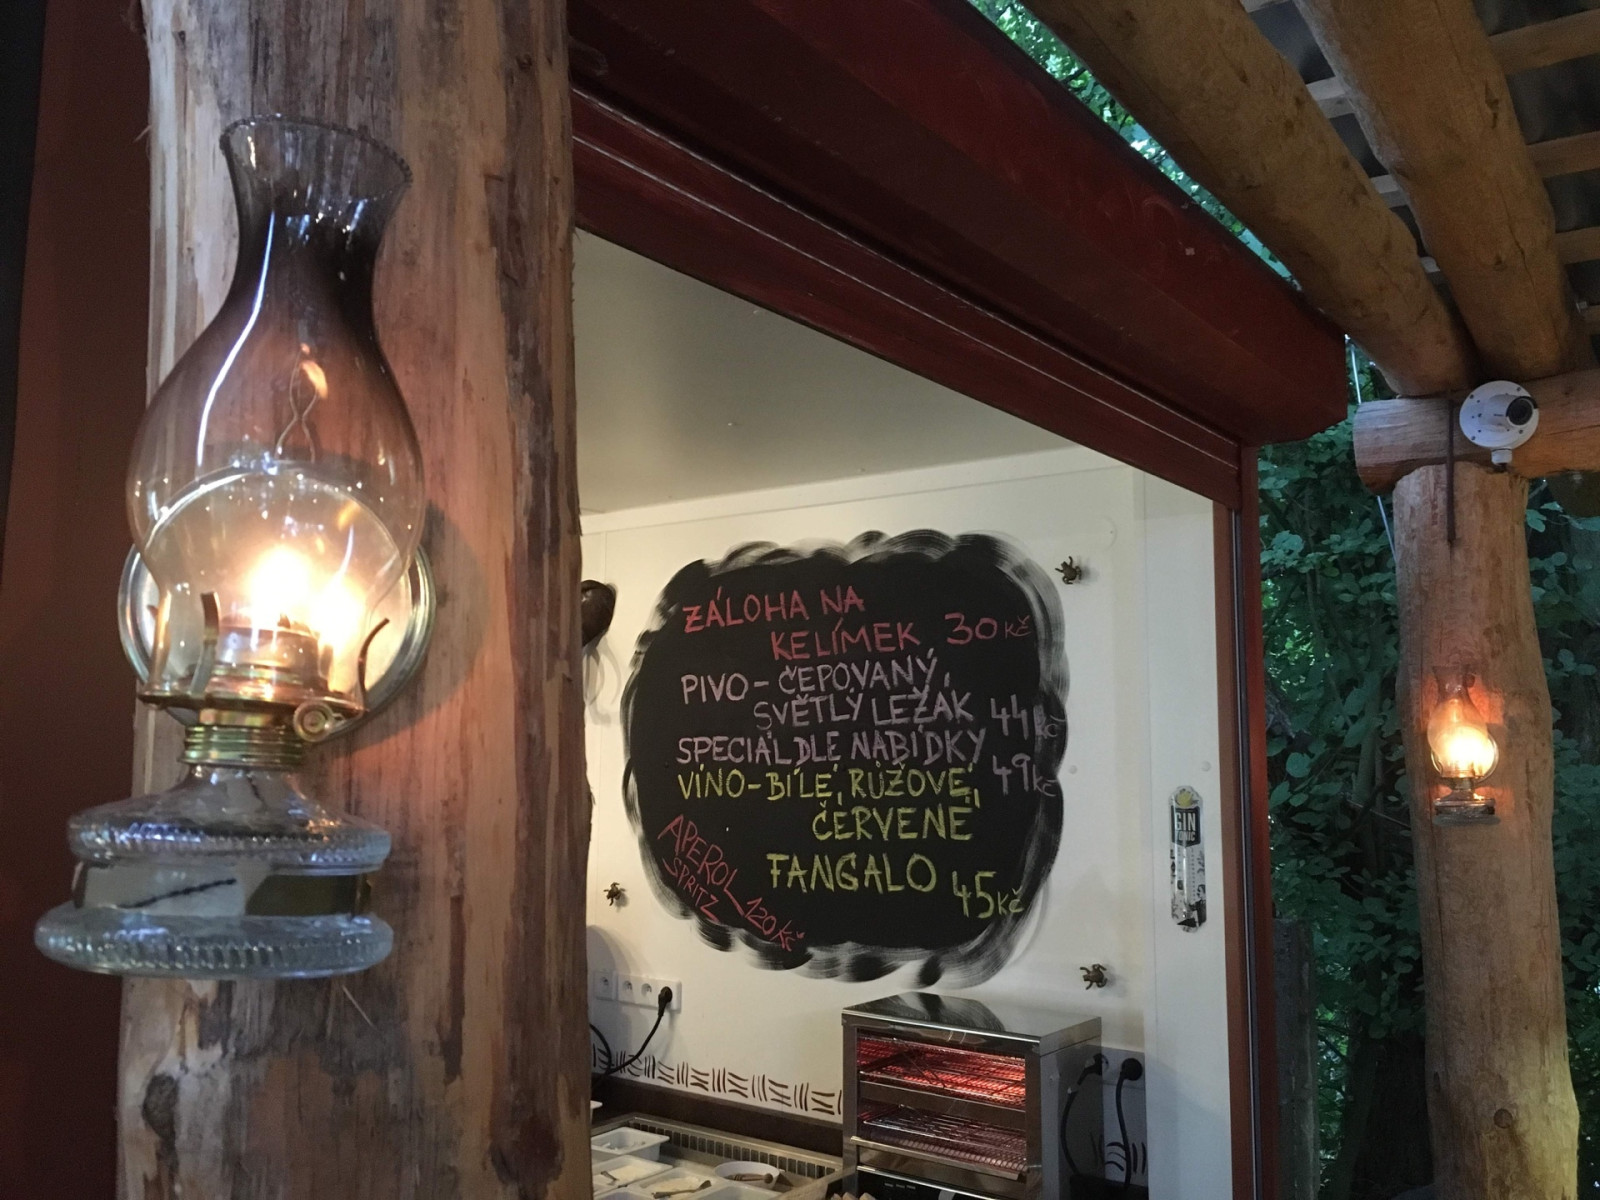 ZÁLOHA NA
KELÍMEK 30 Kč
PIVO - ČEPOVANÝ,
SVĚTLÝ LEŽÁK 44 Kč
SPECIÁL DLE NABÍDKY 49 Kč
VÍNO - BÍLÉ, RŮŽOVÉ,
ČERVENÉ
FANGALO 45 Kč
APEROL
SPRITZ 120 Kč
GIN
TONIC